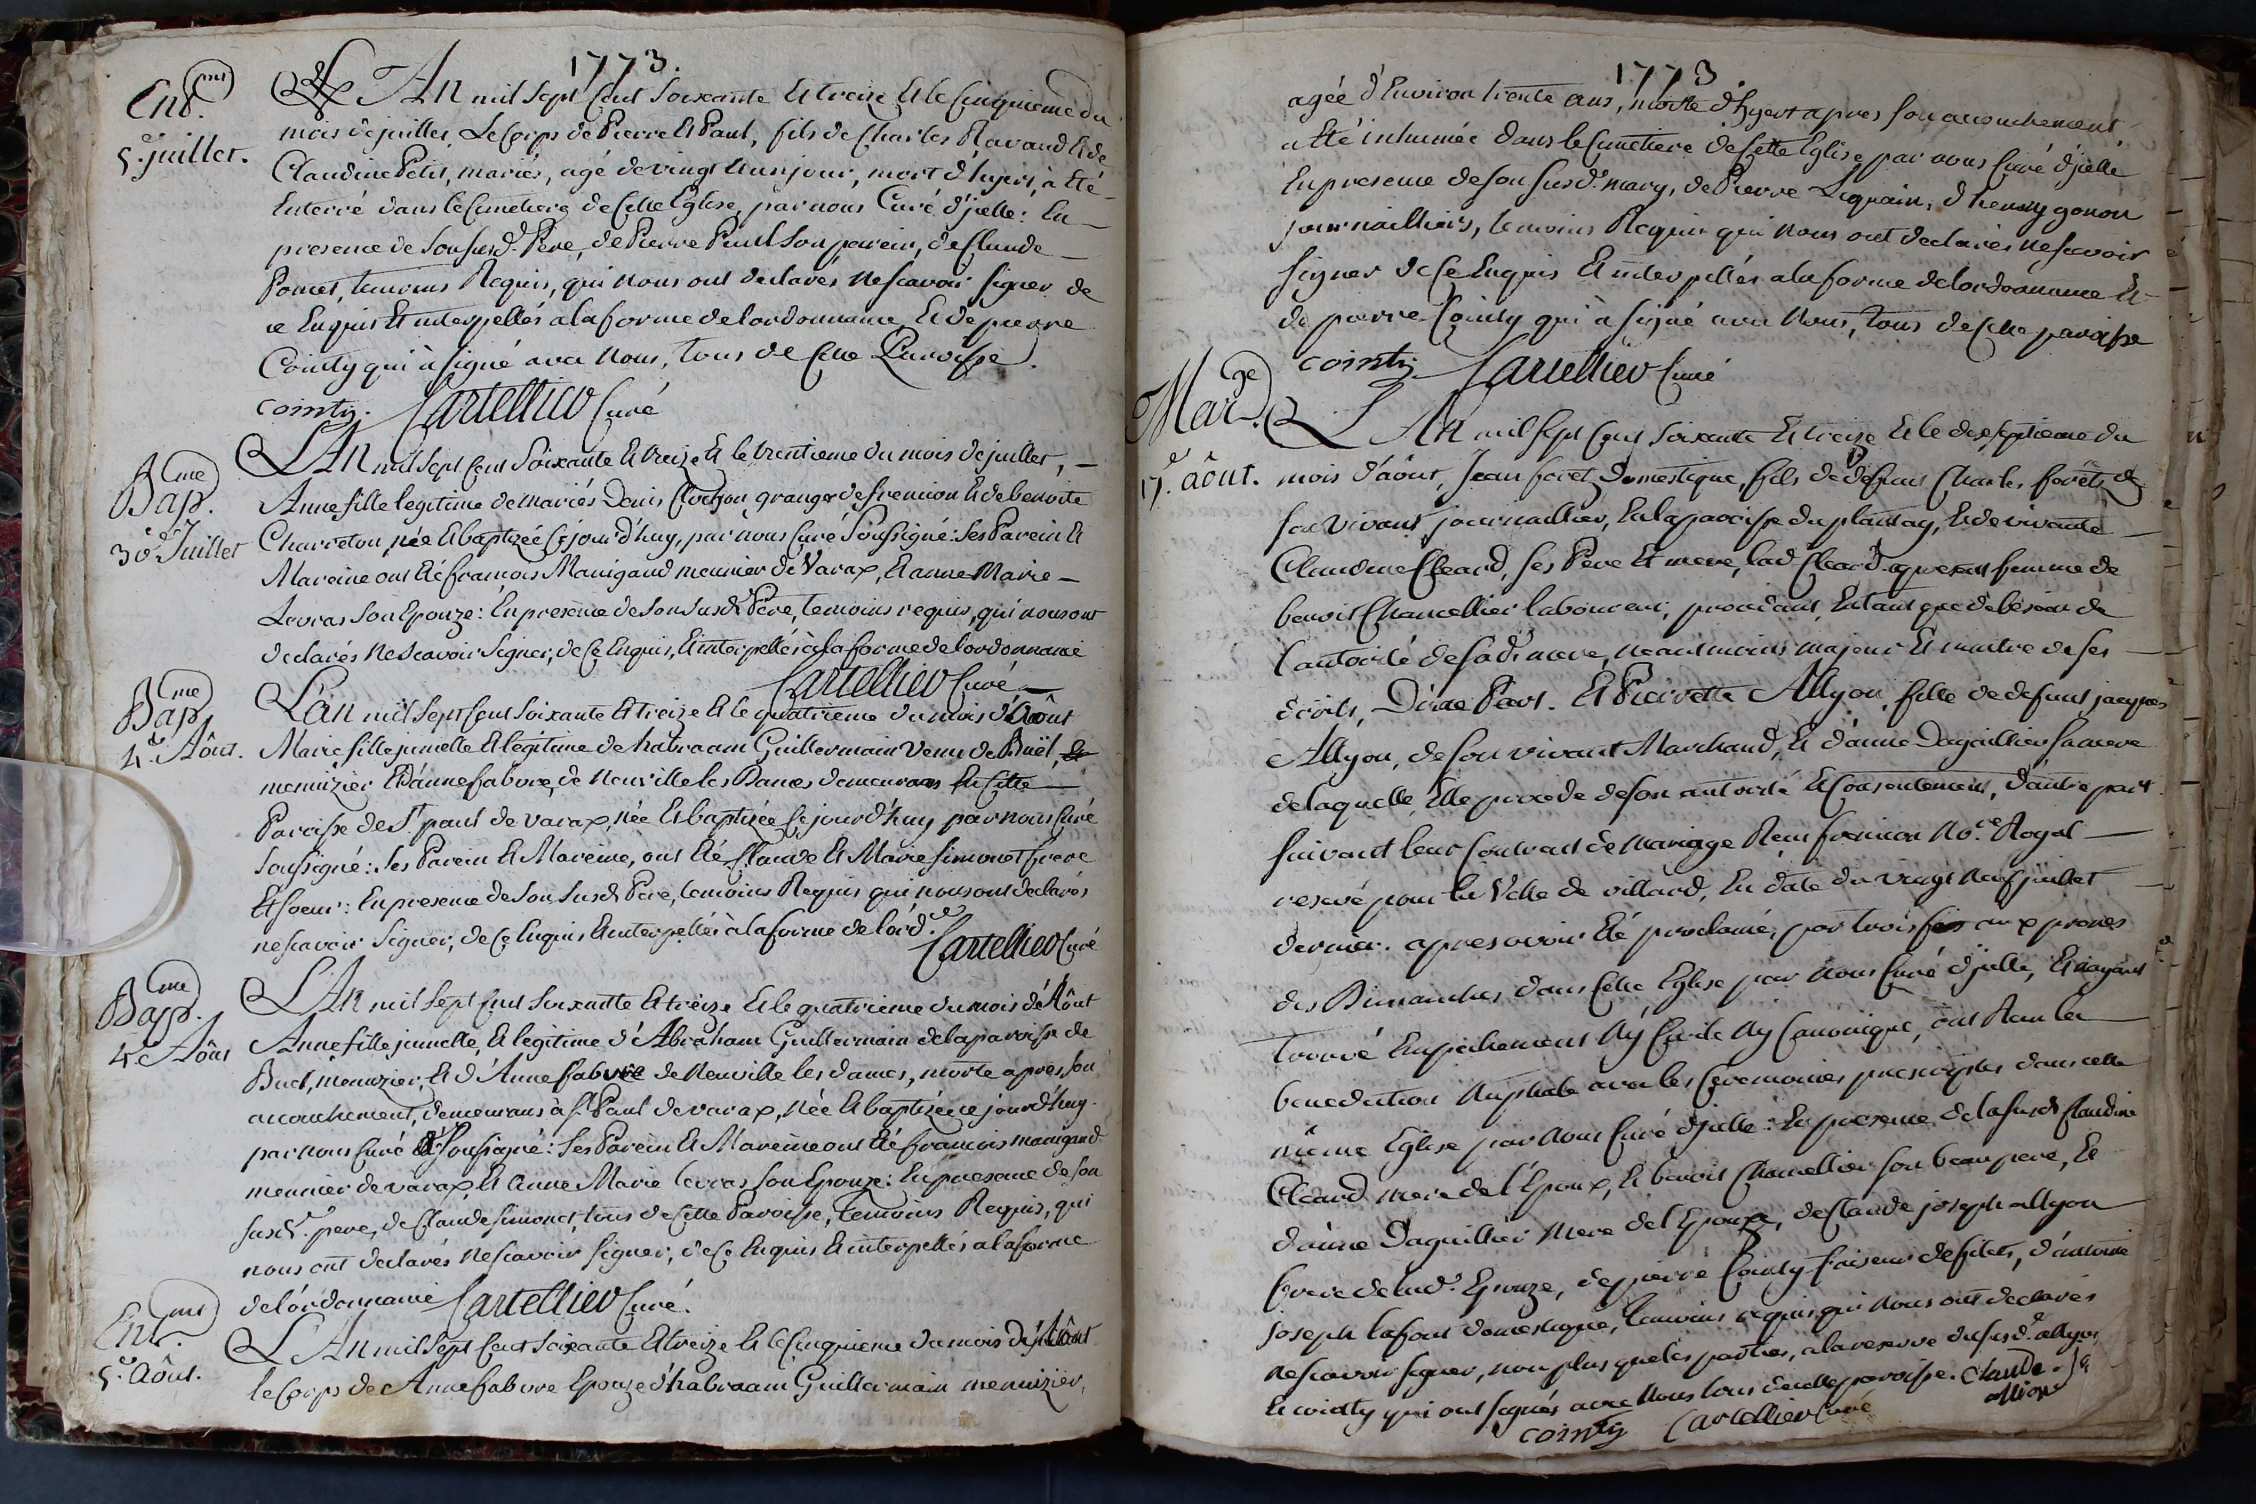 1773.
Ent.mt
5.e juillet.
L'An mil sept Cent soixante Et treize Et le Cinquieme du
mois de juillet, Le Corps de Pierre Et Paul, fils de Charles Ravaud Et de
Claudine Petit, mariés, agé de vingt Et un jour, mort d'hyer, à été
Enterré dans le Cimetiere de Cette Eglise, par nous Curé d'jcelle: En
presence de son susd.t Pere, de Pierre Paul son parein, de Claude
Pomet, temoins Requis, qui nous ont declarés ne scavoir signer de
ce Enquis Et interpellés a la forme de lordonnance Et de pierre
Cointy qui à signé avec Nous, tous de Cette Paroisse.
cointy. Cartellier Curé
Bap.me
30.e Juillet
L'An mil sept Cent soixante Et treize Et le trentieme du mois de juillet,
Anne fille legitime de mariés Denis Clochon granger de fremion Et de benoite
Charreton, née Et baptizée Ce jourd'huy, par nous Curé soussigné: ses Parein Et
Mareine ont été francois Manigand meunier de Varax, Et anne Marie
Levras son Epouze: En presence de son susd.t Pere, temoins requis, qui nous ont
declarés Ne scavoir signer, de Ce Enquis, Et interpellés à la forme de lordonnance
Cartellier Curé
Bap.me
4.e Aôut.
L'an mil sept Cent soixante Et treize Et le quatrieme du mois d'Aôut
Marie fille jumelle Et legitime de habraam Guillermain venu de Buët, Et
menuizier Et d'anne fabvre, de Neuville les Dames demeurans En Cette
Paroisse de St paul de varax, née Et baptizée Ce jourd'huy par nous Curé
soussigné: ses Parein Et Mareine, ont été Claude Et Marie simonet frere
Et soeur: En presence de son susd.t Pere, temoins Requis qui nous ont declarés
ne scavoir signer, de Ce Enquis Et interpellés à la forme de lord.ce
Cartellier Curé
Bap.me
4.e Aôut
L'An mil sept Cent soixante Et treize Et le quatrieme du mois d'Aôut
Anne fille jumelle, Et legitime d'Abraham Guillermain de la paroisse de
Buet, menuzier, Et d'Anne fabvre de Neuville les dames, morte apres son
accouchement, demeurans à St Paul de varax, Née Et baptizée ce jourd'huy
par nous Curé soussigné: ses Parein Et Mareine ont été francois manigand
meunier de varax, Et Anne Marie levras son Epouze: En presence de son
susd.t pere, de Claude simonet, tous de Cette Paroisse, temoins Requis, qui
nous ont declarés Ne scavoir signer, de Ce Enquis Et interpellés a la forme
de l'ordonnance Cartellier Curé.
Ent.mt
5.e Aôut.
L'An mil sept Cent soixante Et treize Et le Cinquieme du mois d'Aôut
le Corps de Anne fabvre Epouze d'habraam Guillermain menuizier,
1773
agée d'Environ trente ans, morte d'hyer apres son accouchement
a été inhumée dans le Cimetiere de Cette Eglise par nous Curé d'jcelle
En presence de son susd.t mary, de Pierre Lequain, d'henry gonon
journailliers, temoins Requis qui Nous ont declarés ne scavoir
signer de Ce Enquis Et interpellés a la forme de lordonnance Et
de pierre Cointy qui à signé avec Nous, tous de Cette paroisse
cointy Cartellier Curé
Mar.ge
17.e aôut.
L'An mil sept Cent soixante Et treize Et le dixseptieme du
mois d'aôut, Jean forêt Domestique, fils de defunt Charles forêt, de
son vivant journaillier, En la paroisse du plantay, Et de vivante
Claudine Cleard, ses Pere Et mere, lad. Cleard a present femme de
benoit Chamellier laboureur, procedant, Entant que de besoin de
l'autorité de sad. mere, neantmoins majeur Et maitre de ses
droits, D'une Part. Et Pierrette Allyon, fille de defunt jacques
Allyon, de son vivant Marchand, Et d'anne Daguillier sa mere
de laquelle, Elle procede de son autorité Et Consentement, d'autre part.
suivant leur Contract de Mariage Reçu fremion No.re Royal
reservé pour la Ville de villard, En date du vingt neuf juillet
dernier. apres avoir été proclamé, par trois fois aux prones
des Dimanches dans Cette Eglise par Nous Curé d'jcelle, Et n'ayant
trouvé Empechement Ny Civile Ny Canonique, ont Reçu la
benediction Nuptiale avec les Ceremonies prescriptes dans cette
même Eglise par Nous Curé d'jcelle: En presence de la susd. Claudine
Cleard mere de l'Epoux, Et benoit Chamellier son beau pere, Et
d'anne Daguillier Mere de l'Epouze, de Claude joseph allyon
frere de lad. Epouze, de pierre Cointy faiseur de filets, d'antoine
joseph lafont domestique, temoins requis qui Nous ont declarés
ne scavoir signer, non plus que les parties, a la reserve du susd.t allyon
Et cointy qui ont signés avec Nous tous de cette paroisse. Claude
allion
cointy Cartellier Curé